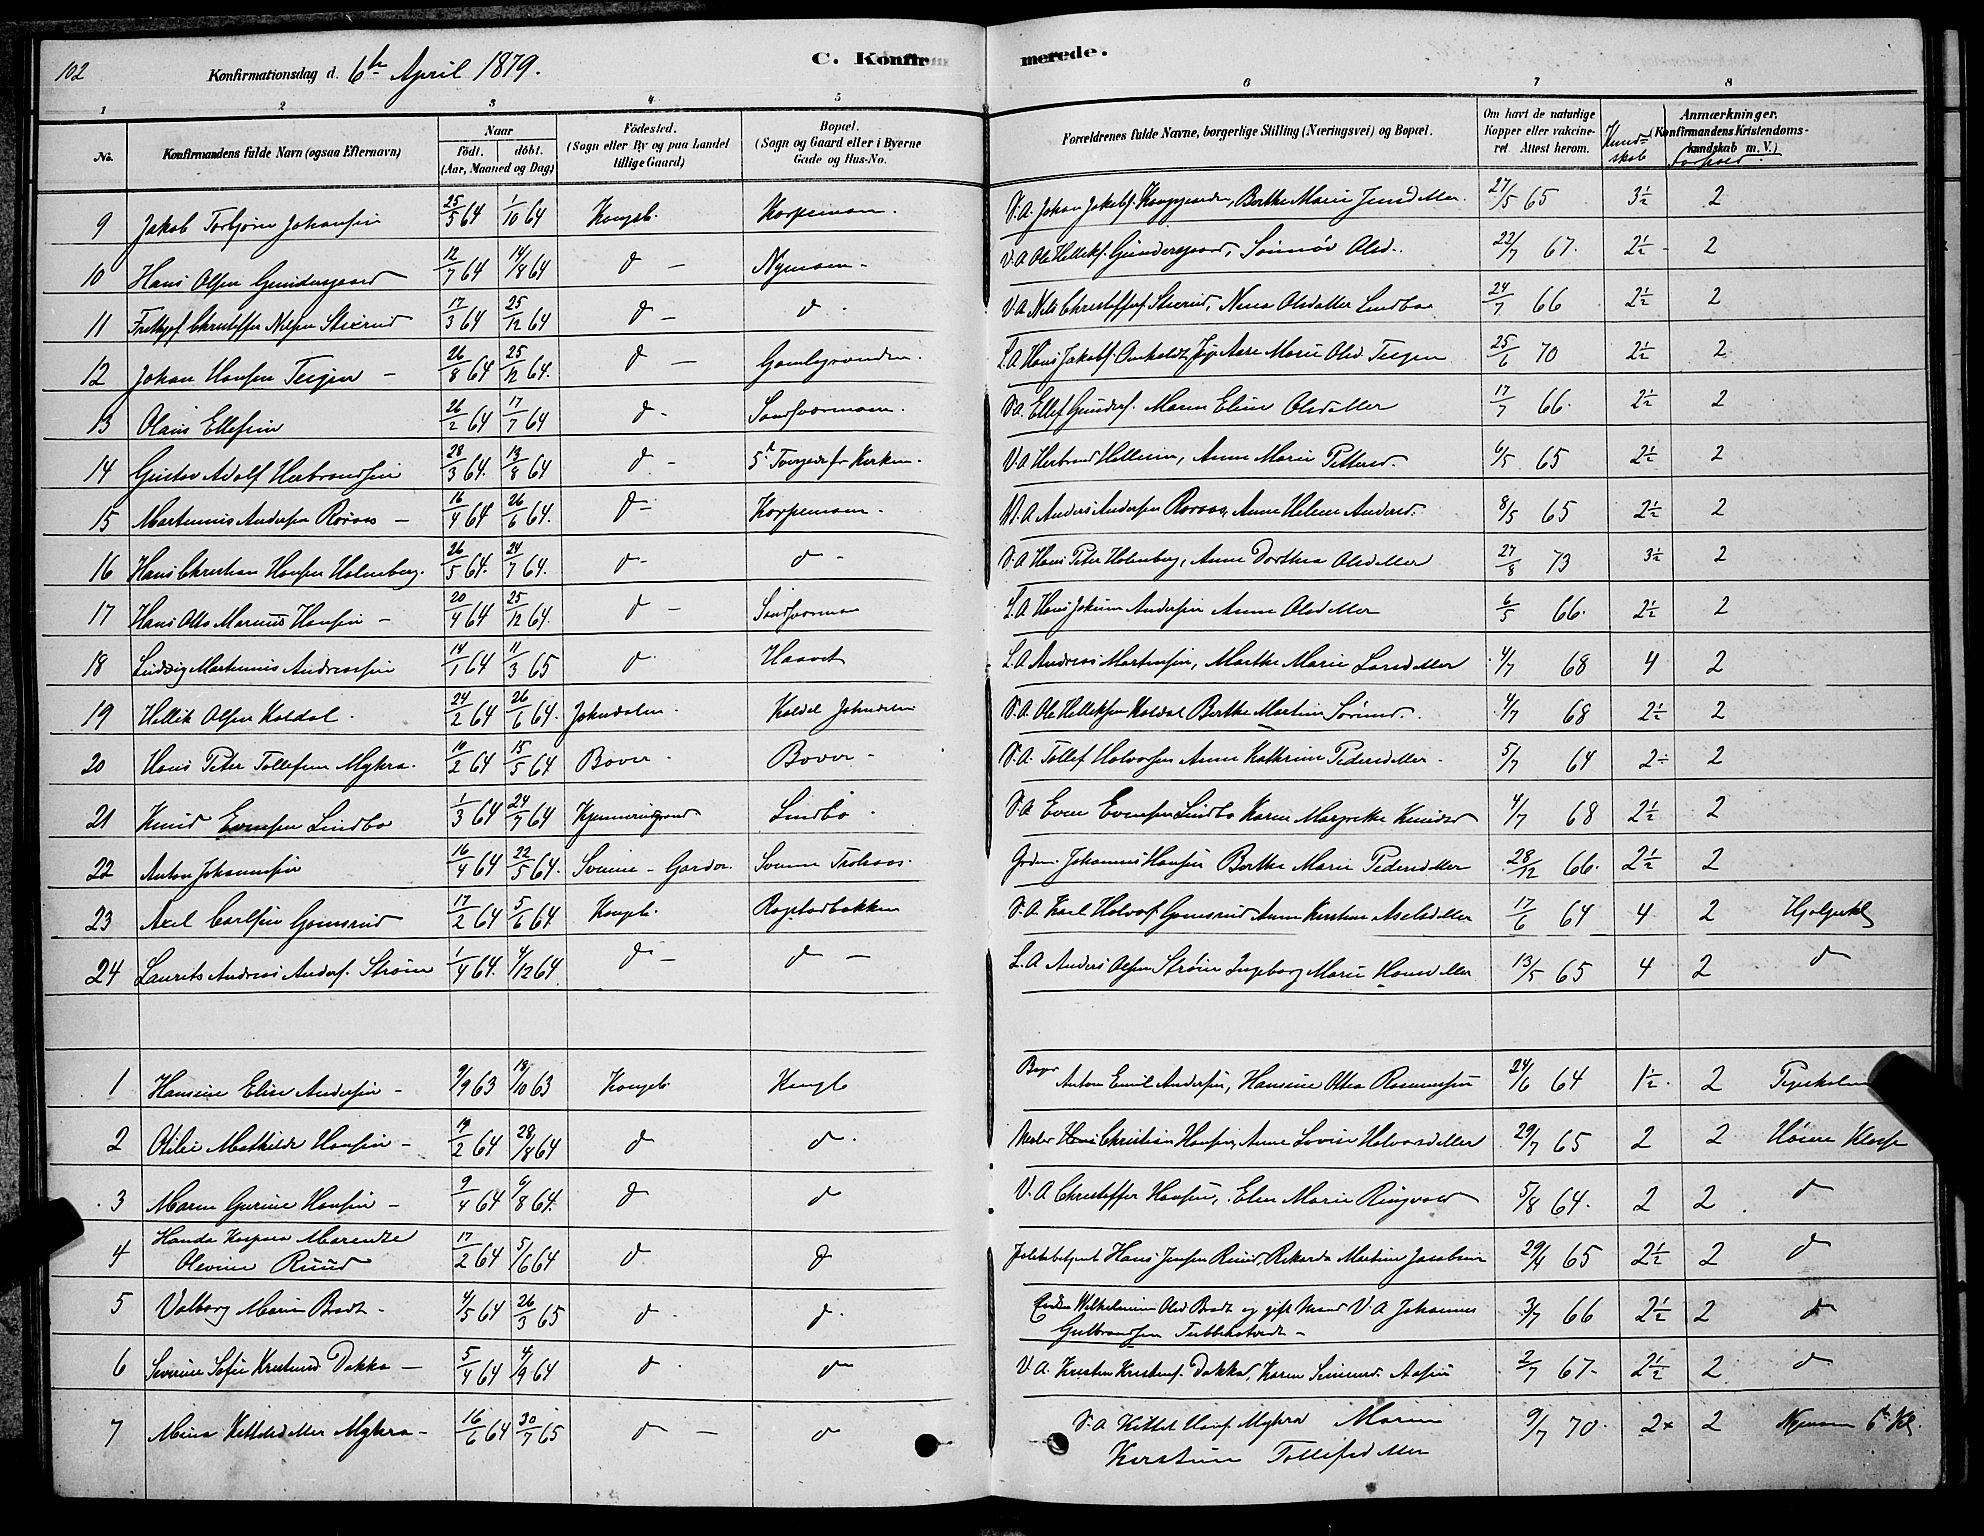 102 Konfirmationsdag d. 6te April 1879. C. Konfirmerede.
1 2 3 4 5 6 7 8
No. Konfirmandens fulde Navn (ogsaa Efternavn) Naar født. døbt. (Aar, Maaned og Dag) Fødested. (Sogn eller By og paa Landet tillige Gaard) Bopæl. (Sogn og Gaard eller i Byerne Gade og Hus-No. Forældrenes fulde Navne, borgerlige Stilling (Næringsvei) og Bopæl. Om havt de naturlige Kopper eller vaccineret. Attest herom. Kundskab Anmærkninger. (Konfirmandens Kristendomskundskab m. V.) Forhold.
9 Jakob Torbjørn Johansen 25/5 64 1/10 64 Kongsb. Korpemoen. V.A. Johan Jakobs. Berthe Marie Jensdatter. 27/5 65 3½ 2
10 Hans Olsen Gundersgaard 12/7 64 14/8 64 d - Nymoen - V.A Ole Helleks. Gundersgaard, Sønnøv Olsd. 22/7 67. 2½ - 2
11 Frethjof Christoffer Nilsen Stixrud 17/3 64 25/12 64 d - d - V.A Nils Christoffers. Stixrud, Nina Olsdatter Lindbo 24/7 66 2½ 2
12 Johan Hansen Teigen - 26/8 64 25/12 64. d - Gamlegrunden. L.A Hans Jakobs. Aase Marie Olsd. Teigen 25/6 70 2½ 2
13 Olaus Ellefsen 26/2 64 17/7 64 d - Sandsværmoen. V.A. Ellef Gunders. Maren Eline Olsdatter 17/7 66. 2½ 2
14 Gustav Adolf Herbrandsen 28/3 64. 13/8 64 d - Kirken - V.A Herbrand Hellesen, Anne Marie Petersd. 6/5 65 2½ 2
15 Martinius Andersen Roraas - 16/4 64 26/6 64. d - Korpemoen - V.A Anders Andersen Roraas, Anne Helene Andersd. 8/5 65 2½ 2
16 Hans Christian Hansen Holenberg. 26/5 64. 24/7 64. d - d - V.A Hans Peter Holenberg, Anne Dorthea Olsdatter 27/8 73 3½ 2
17 Hans Otto Marius Hansen - 20/4 64 25/12 64. d - Sandsværmoe L.A Hans Jokum Andersen Anne Olsdatter 6/5 66. 2½ 2
18 Ludvig Martinius Andreassen 14/1 64 11/3 65 d. Haavet L.A Andreas Martinsen, Marthe Marie Larsdatter 4/7 68 4 2
19 Hellik Olsen Koldal. 24/2 64 26/6 64. Johndalen. Koldal Johndalen V.A. Ole Helleksen Koldal Berthe Martin Sørensd. 4/7 68 2½ 2
20 Hans Peter Tollefsen Myhra. 10/2 64 15/5 64 Bæver - Bæver - V.A. Tollef Halvorsen Anne Kathrine Pedersdatter - 5/7 64 2 ÷ 2
21 Knud Evensen Lindbo 1/3 64 24/7 64 Lindbo - V.A Even Evensen Lindbo Karen Margrethe Knudsd 4/7 68 2½ 2
22 Anton Johannesen 16/4 64 22/5 64. Svenne - Svenne Grdm. Johannes Hansen Berthe Marie Pedersdatter 28/12 66. 2½ 2
23 Axel Carlsen Gomsrud 17/2 64 5/6 64 Kongsb. Rogstadbakken V.A. Karl Halvors. Gomsrud Anne Kirstine Axelsdatter 17/6 64 4 2 Hjelpeskl
24 Laurits Andreas Anders. Strøm 1/4 64. 4/12 64 d - d - L.A Anders Olsen Strøm Ingeborg Marie Hansdatter 13/5 65 4 2 d
1 Hansine Elise Andersen - 9/9 63 18/10 63 Kongsb Kongsb Anton Emil Andersen, Hansine Otea Rasmussen 24/6 64 1½. 2 Pigeskolen
2 Otilie Mathilde Hansen - 19/2 64 28/8 64 d d. Hans Christian Hansen, Anne Lovise Halvorsdatter 29/7 65 2 2 Høiere Klasse
3 Maren Gurine Hansen - 9/4 64 6/8 64. d d V.A Christoffer Hansen, Elen Marie Ringvold 5/8 64. 2 2 d
4 Handa Kaspara Marentze
Olevine Ruud 17/2 64 5/6 64 d d Hans Jensen Ruud, Rikarda Martine Jacobsen 29/4 65 2½ 2 d
5 Valborg Marie Bradt - 4/5 64 26/3 65 d. d. Wilhelmine Olsd. Bradt og gift Mand V.A Johannes
Gulbrandsen - 3/7 66 2½ 2 d
6 Severine Sofie Kristensd. Dokka - 5/4 64 4/9 64 d. d V.A. Kristen Kristens. Dokka, Karen Simensd. Aasen 2/7 67. 2½ 2 d
7 Mina Kittelsdatter Myhra - 16/6 64 30/7 65 d - d V.A Kittel Myhra Maren
Kirstine Tollefsdatter 9/7 70. 2+ 2 Nymoen 6te Kl.